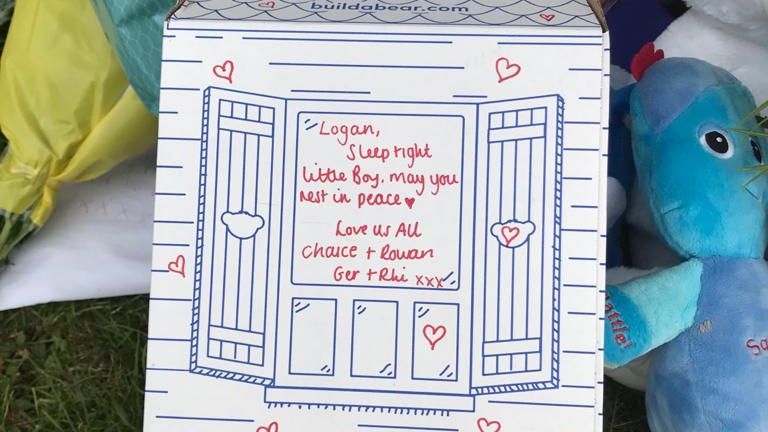 buildabear.com
Logan,
Sleep tight
little Boy. may you
rest in peace
Love us All
Chaice + Rowan
Ger + Rhi xxx